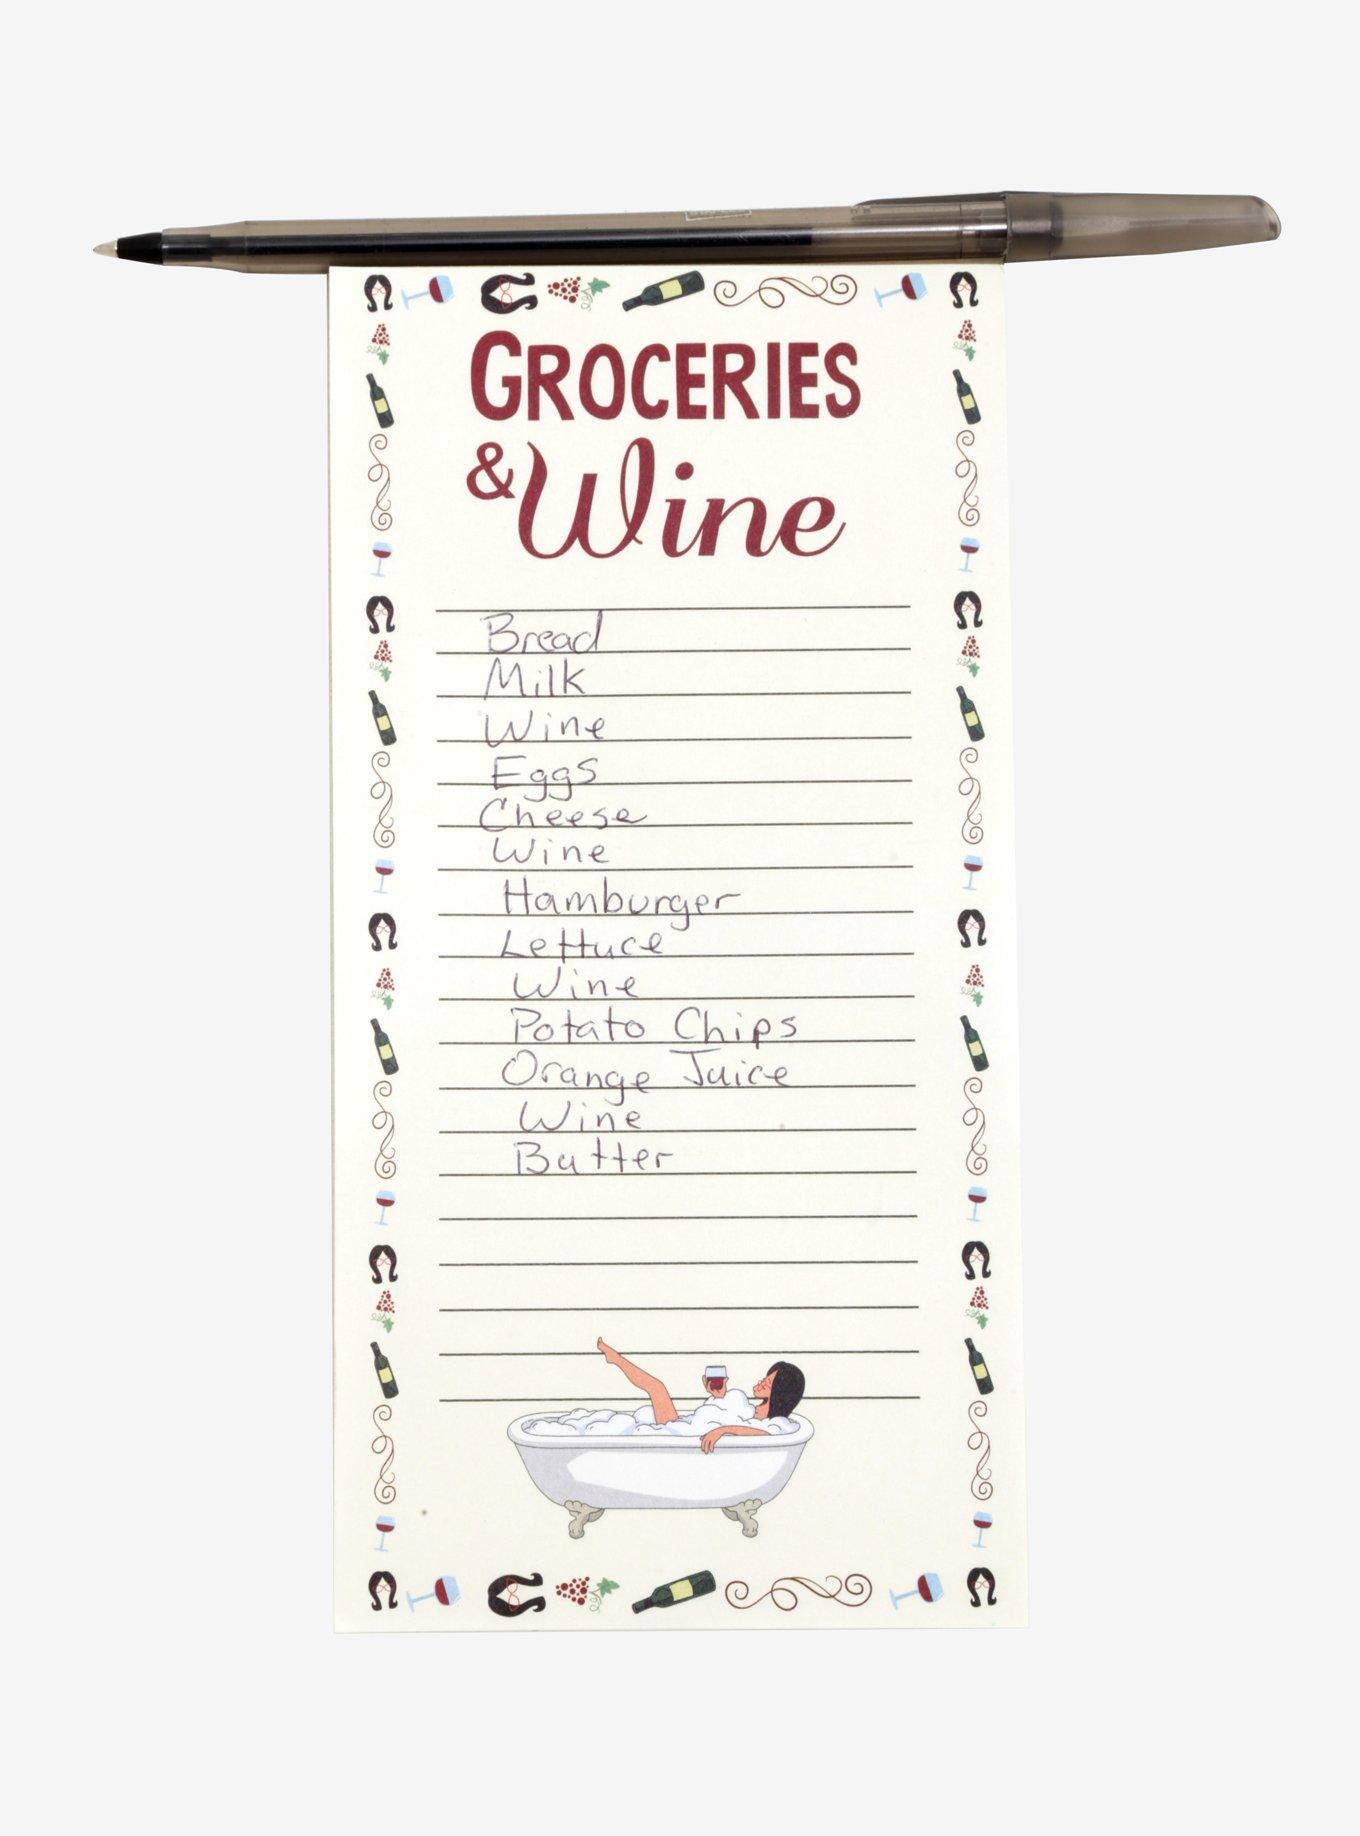 GROCERIES
& Wine
Bread
Milk
Wine
Eggs
Cheese
Wine
Hamburger
Lettuce
Wine
Potato Chips
Orange Juice
Wine
Butter